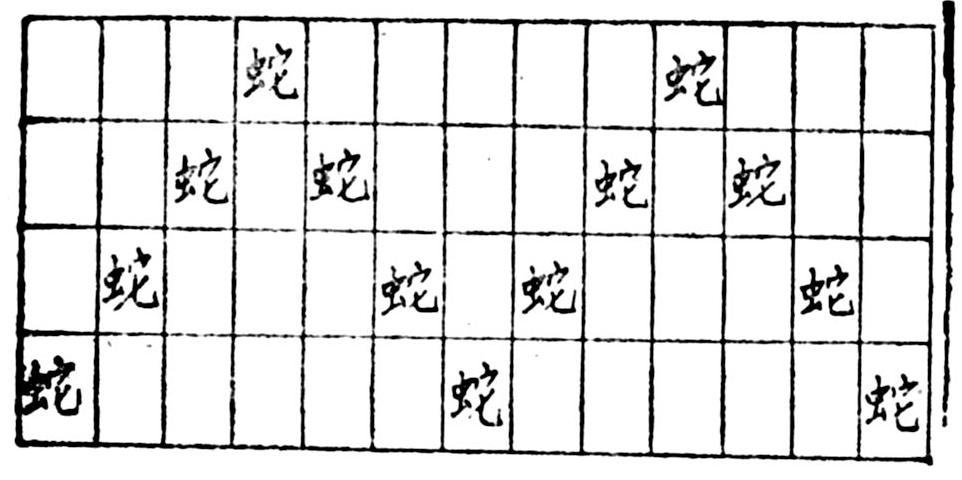 蛇 蛇
蛇 蛇 蛇 蛇
蛇 蛇 蛇 蛇
蛇 蛇 蛇